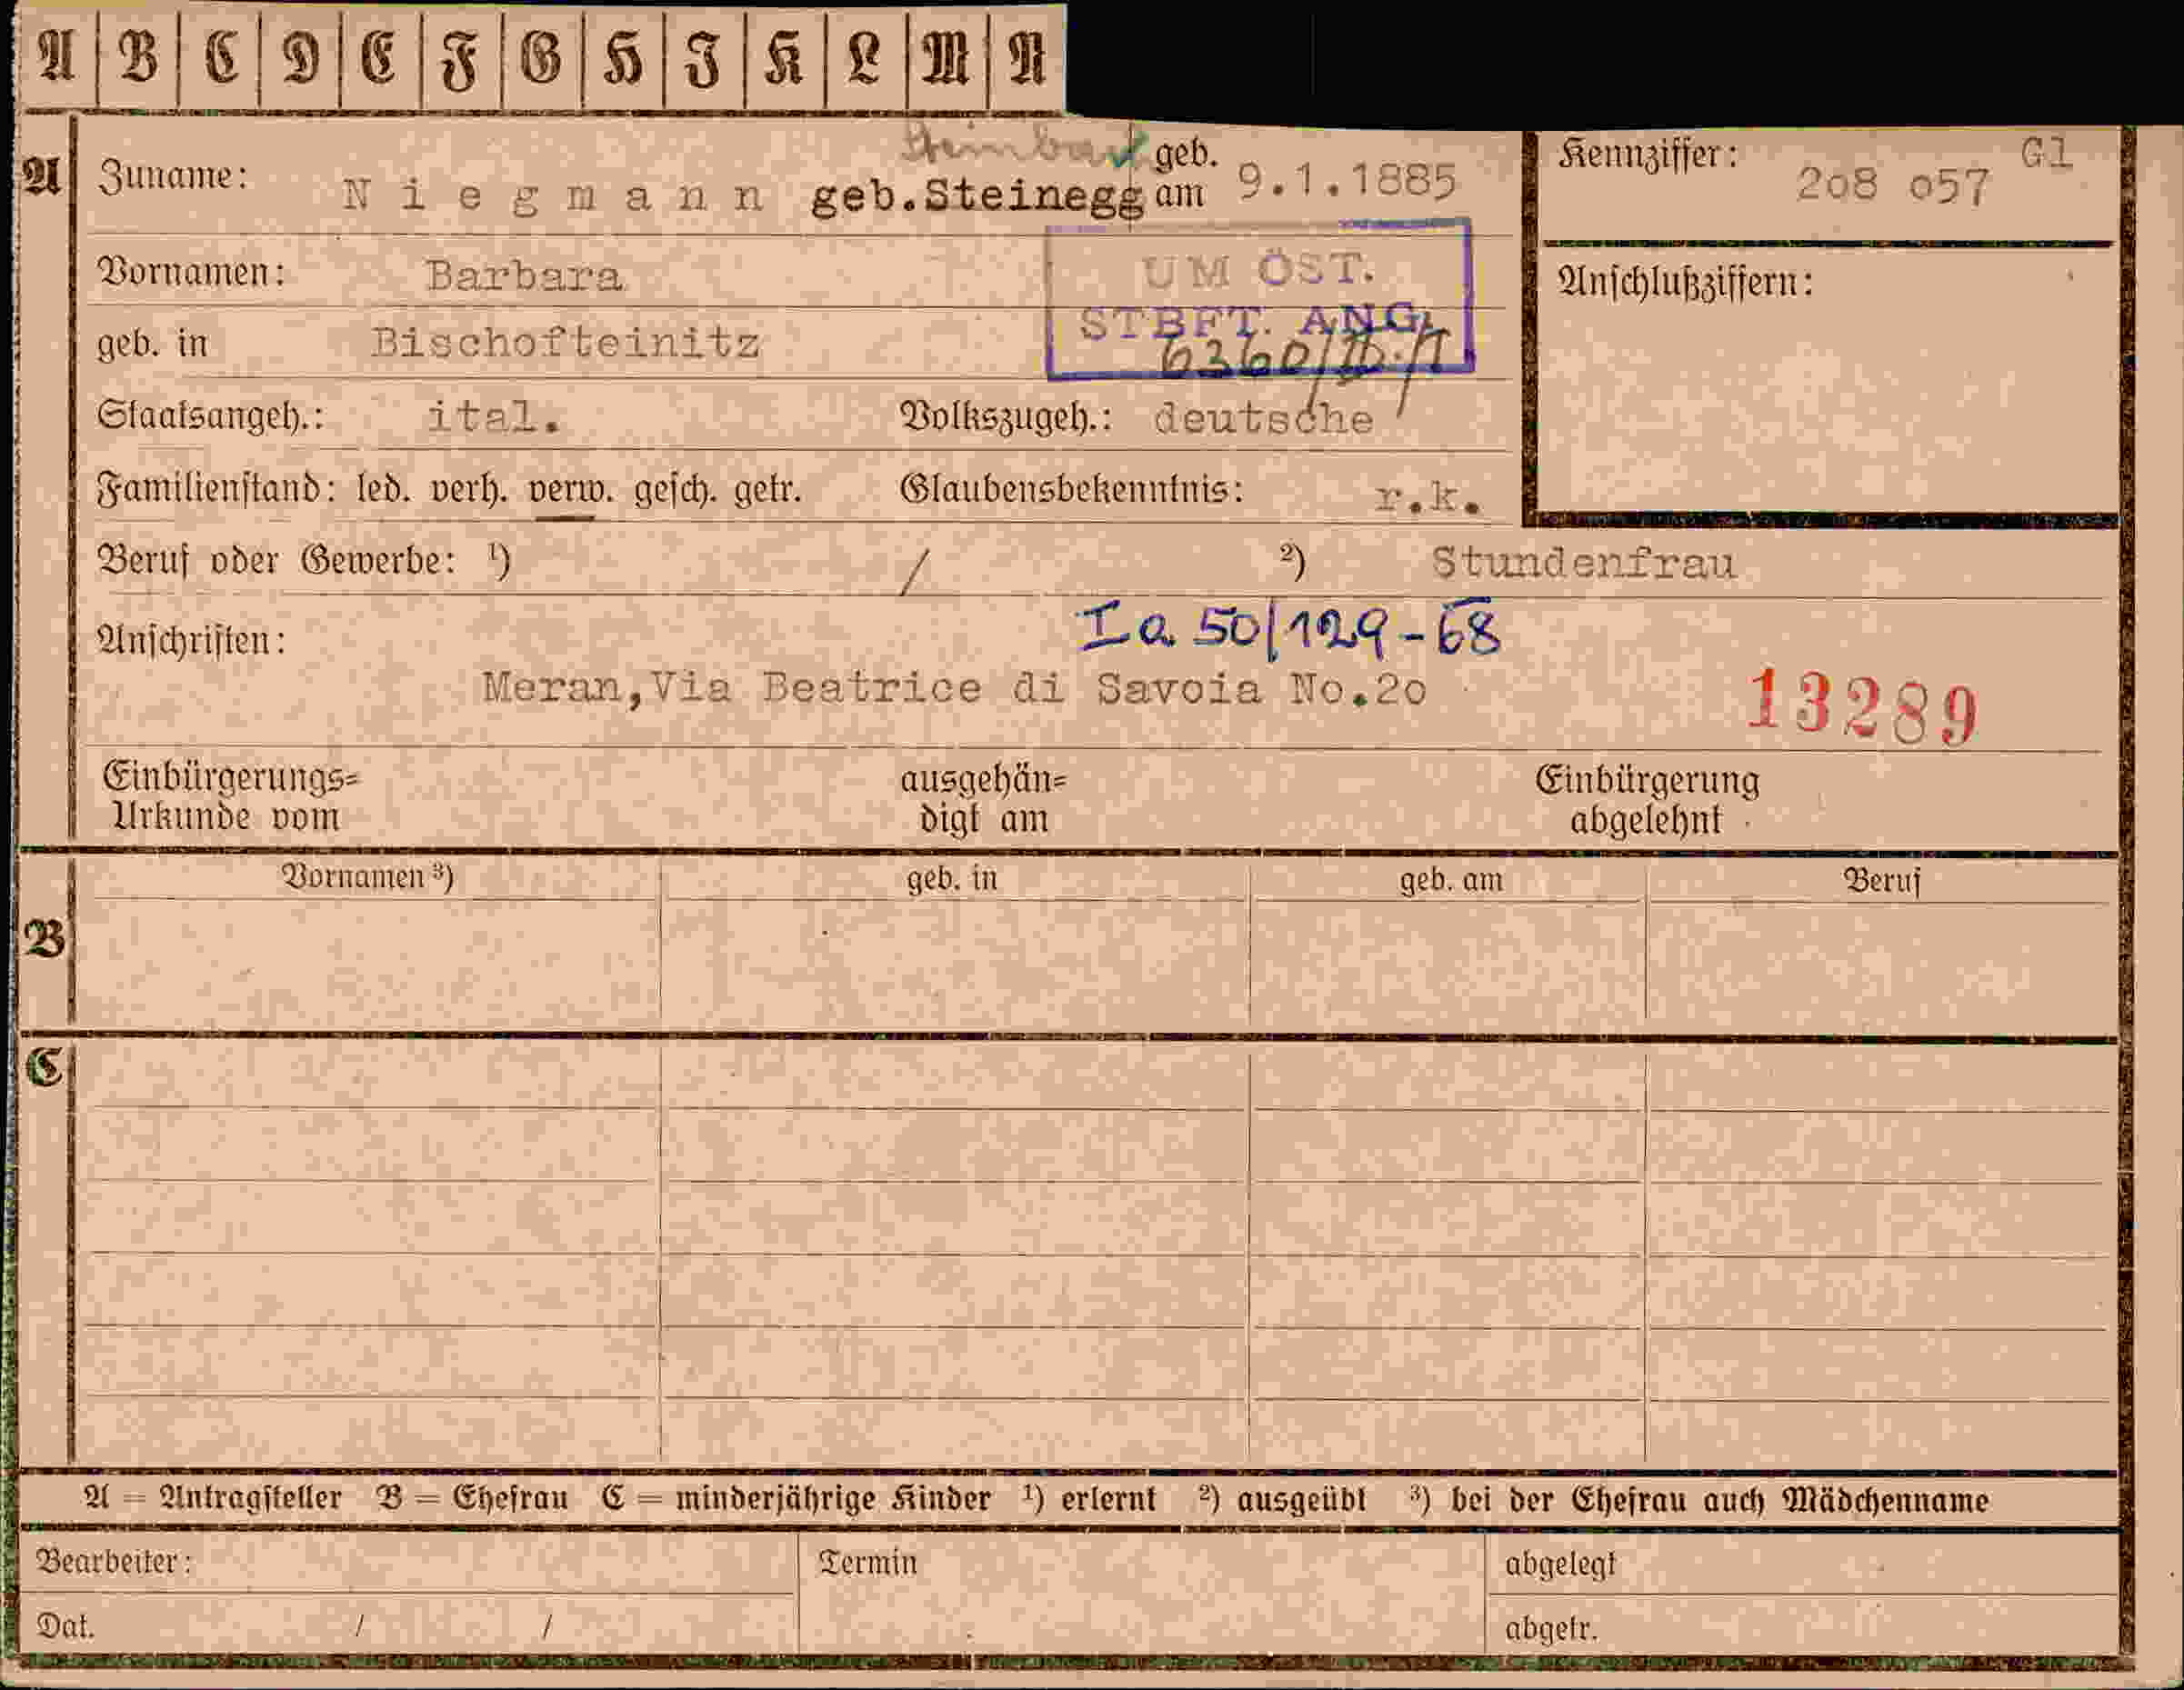 A B C D E F G H I K L M N
A Zuname: Niegmann geb.Steinegg geb. am 9.1.1885
Kennziffer: 208 057 Gl
Vornamen: Barbara
UM ÖST.
STBFT. ANG.
Anschlußziffern:
geb. in Bischofteinitz
Staatsangeh.: ital. Volkszugeh.: deutsche
Familienstand: led. verh. verw. gesch. getr. Glaubensbekenntnis: r.k.
Beruf oder Gewerbe: ¹) / ²) Stundenfrau
Anschriften: Ia 50/129-68
Meran,Via Beatrice di Savoia No.20
13289
Einbürgerungs= ausgehän= Einbürgerung
Urkunde vom digt am abgelehnt
Vornamen ³) geb. in geb. am Beruf
B
C
A = Antragsteller B = Ehefrau C = minderjährige Kinder ¹) erlernt ²) ausgeübt ³) bei der Ehefrau auch Mädchenname
Bearbeiter: Termin abgelegt
Dat. / / abgetr.